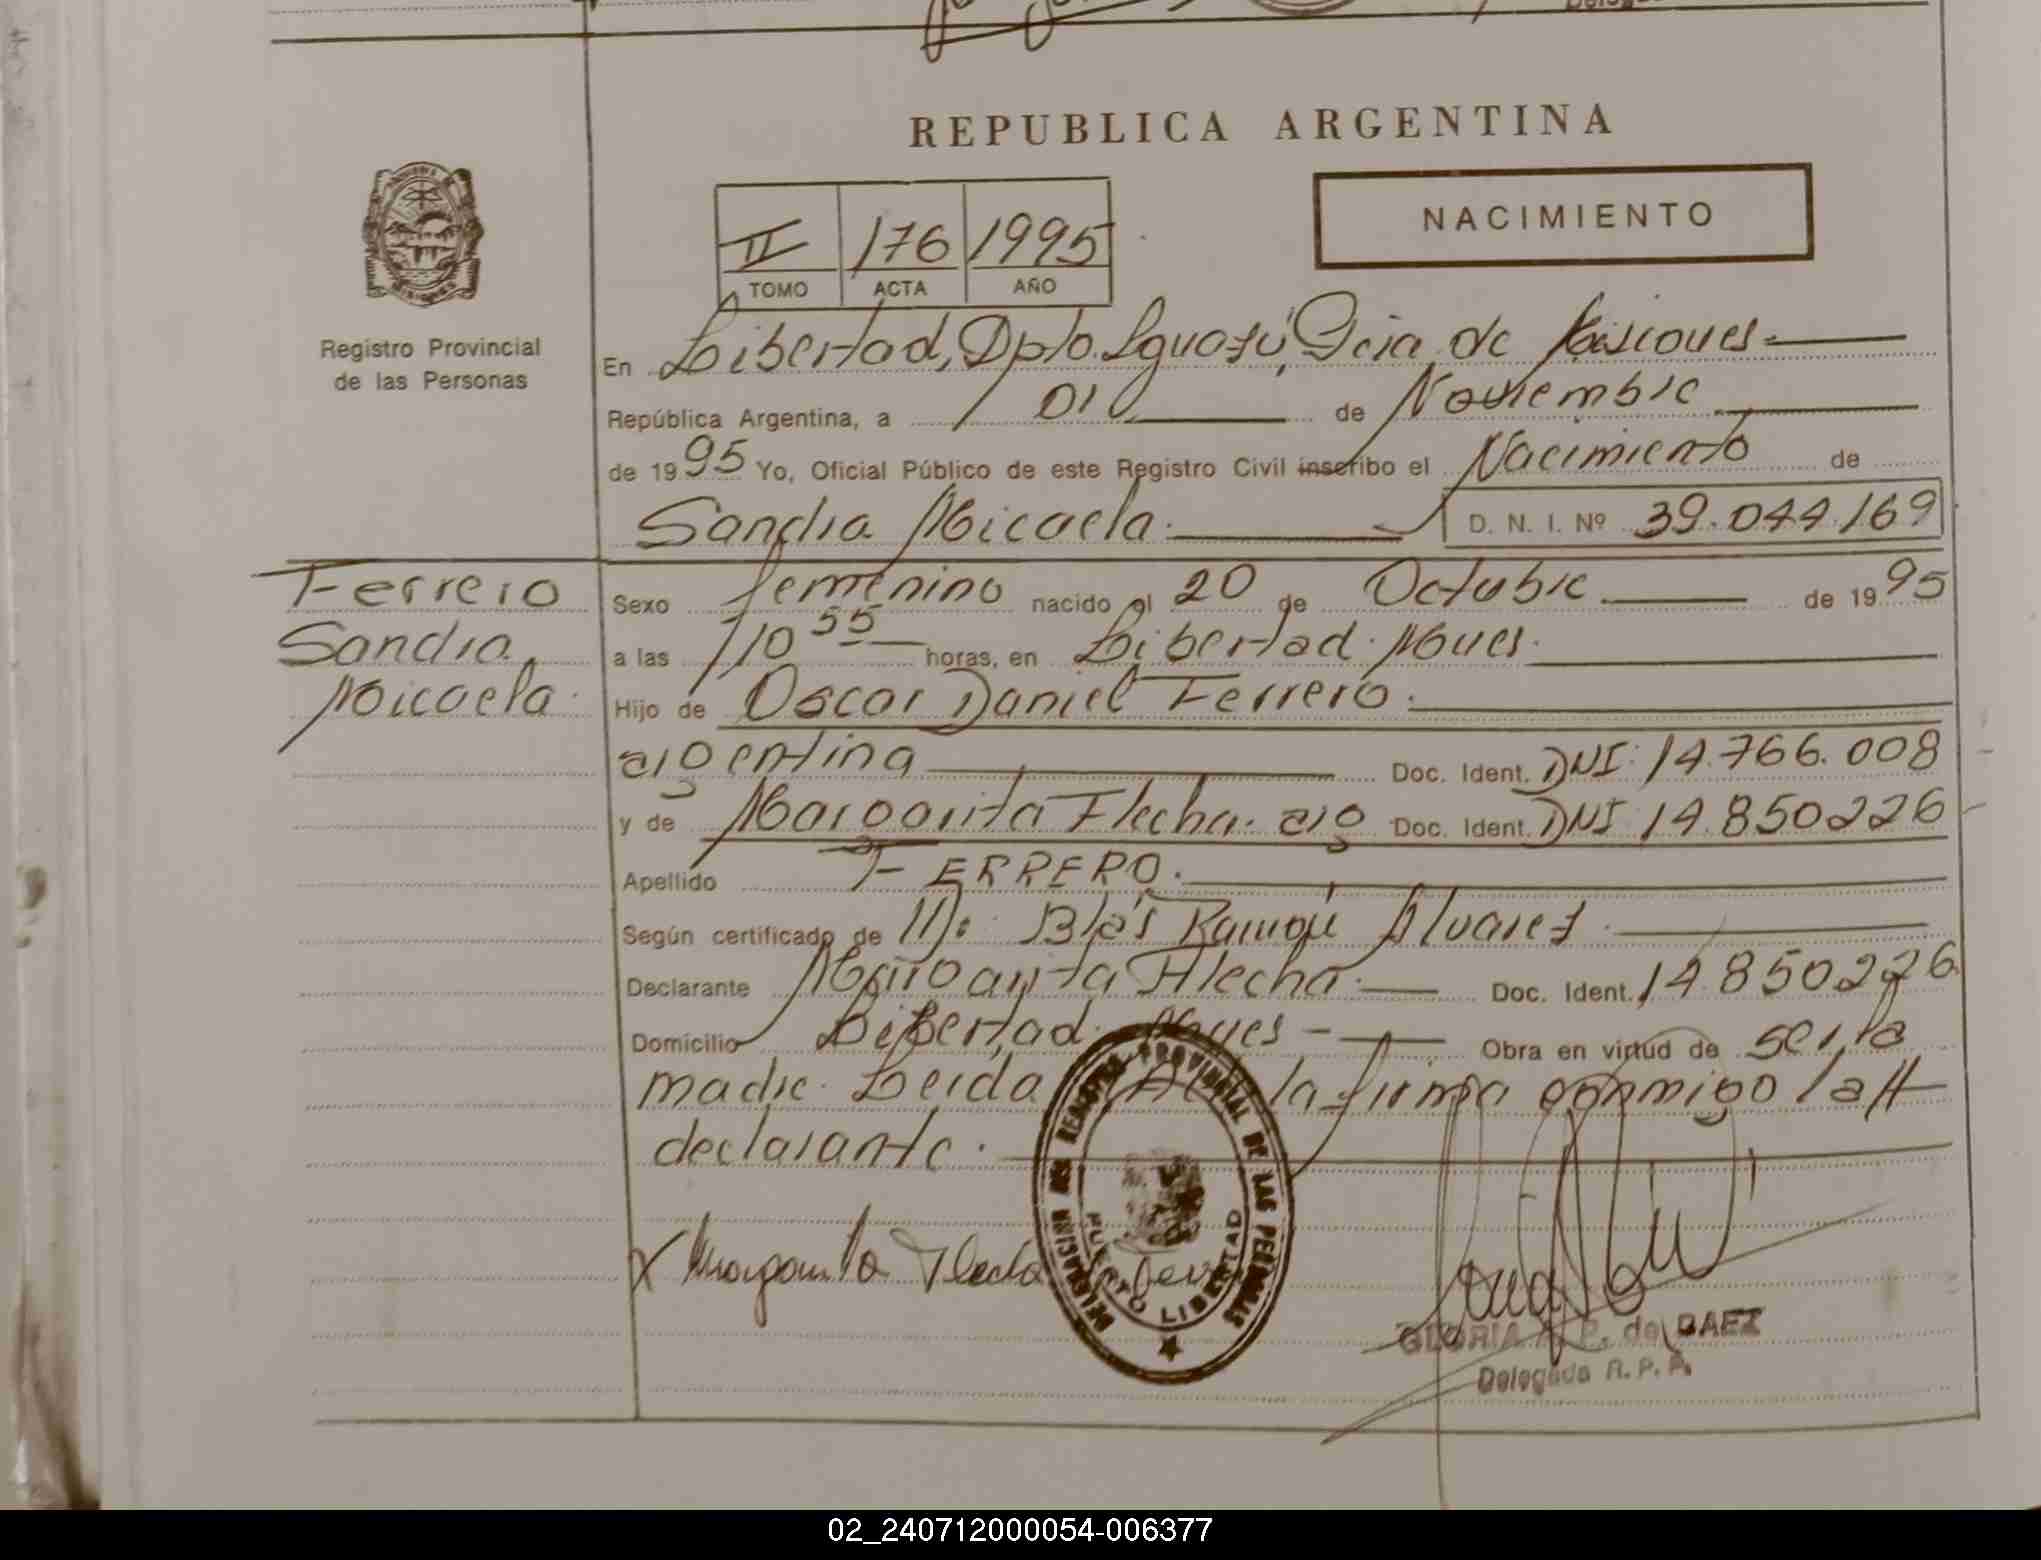 REPUBLICA ARGENTINA
NACIMIENTO
II 176 1995
TOMO ACTA AÑO
Registro Provincial
de las Personas
En Libertad, Dpto. Iguazú, Pcia de Misiones
República Argentina, a 01 de Noviembre
de 1995 Yo, Oficial Público de este Registro Civil inscribo el Nacimiento de
Sandra Micaela. D. N. I. Nº 39.044.169
Ferrero
Sandra
Micaela
Sexo femenino nacido el 20 de Octubre de 1995
a las 10 55 horas, en Libertad. Mnes.
Hijo de Oscar Daniel Ferrero.
argentina Doc. Ident. DNI: 14.766.008
y de Margarita Flecha. arg Doc. Ident. DNI 14.850226
Apellido FERRERO.
Según certificado de Blás Ramón Alvarez
Declarante Margarita Flecha. Doc. Ident. 14.850226
Domicilio Libertad. Mnes - Obra en virtud de ser la
madre. Leída la firma conmigo la
declarante.
DELEGACION DEL REGISTRO PROVINCIAL DE LAS PERSONAS
PUERTO LIBERTAD
X Margarita Flecha
GLORIA P. de BAEZ
Delegada R. P. P.
02_240712000054-006377